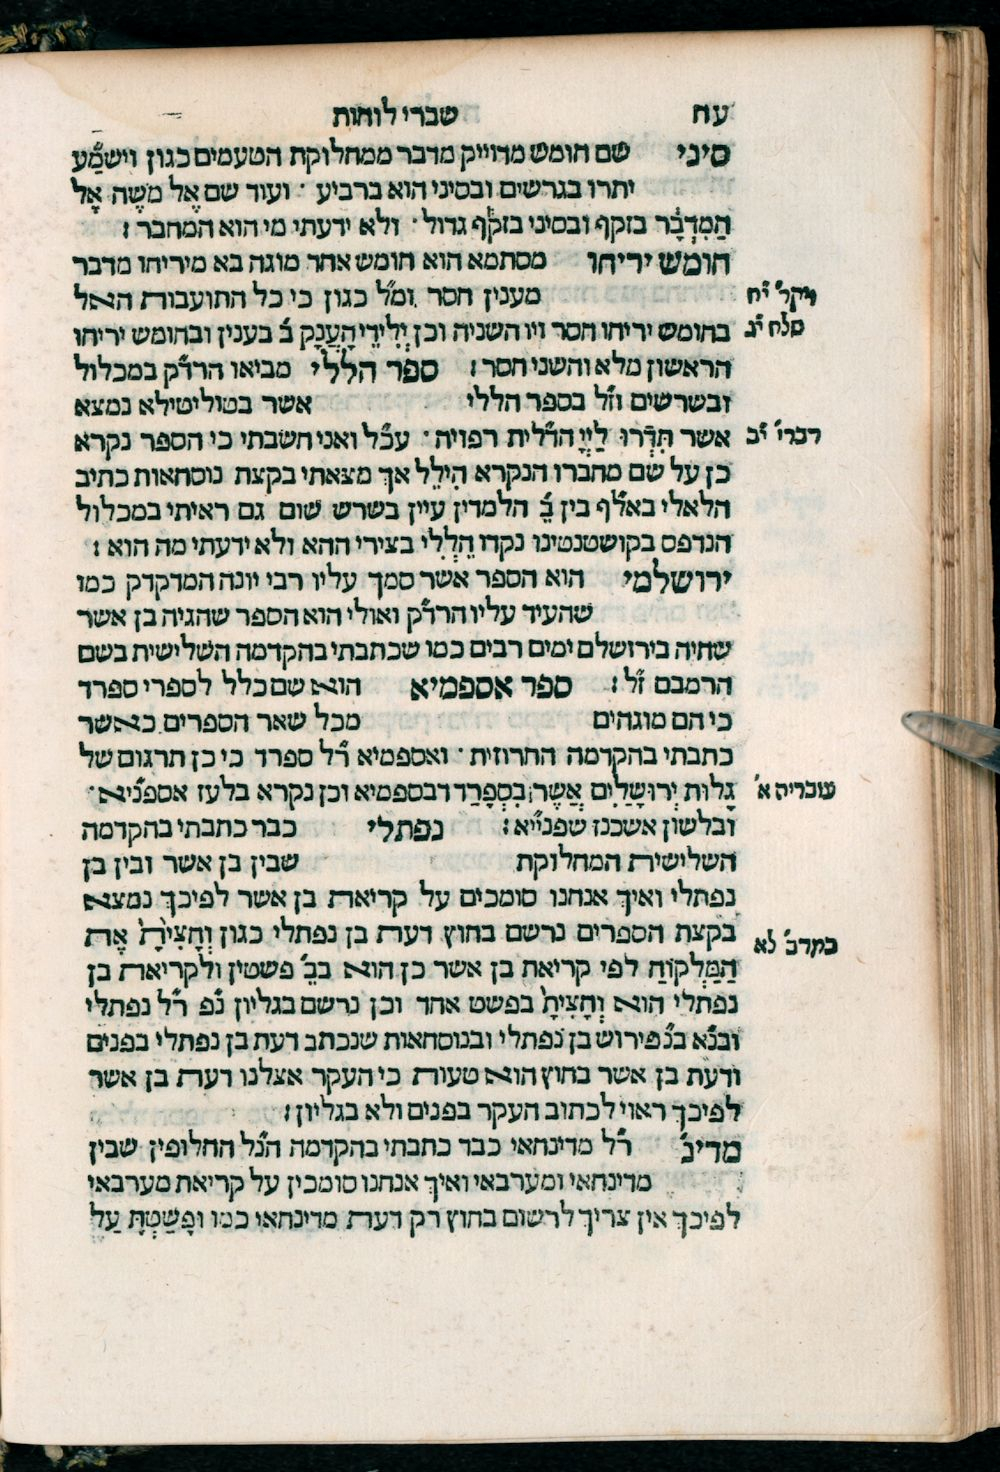 עח שברי לוחות
סיני שם חומש מדוייק מדבר ממחלוקת הטעמים כגון וישמַ֞ע
יתרו בגרשים ובסיני הוא ברביע ׃ ועוד שם אֶל מֹשֶה אֶל
הַמִדְבָר בזקף ובסיני בזקף גדול ׃ ולא ידעתי מי הוא המחבר :
חומש יריחו מסתמא הוא חומש אחד מוגה בא מיריחו מדבר
מענין חסר ומ״ל כגון כי כל התועבות האל
ויקר׳ י״ח
בחומש יריחו חסר ויו השניה וכן יְלִידֵי הָעֲנָק ב״ בענין ובחומש יריחו
שלח י״ג
הראשון מלא והשני חסר : ספר הללי מביאו הרד״ק במכלול
ובשרשים וז״ל בספר הללי אשר בטוליטילא נמצא
אשר תִּדְּרוּ לַיְיָ הד״לית רפויה ׃ עכ״ל ואני חשבתי כי הספר נקרא
דברי׳ י״ב
כן על שם מחברו הנקרא הִילֵל אך מצאתי בקצת נוסחאות כתיב
הלאלי באל״ף בין ב״ הלמדין עיין בשרש שום גם ראיתי במכלול
הנדפס בקושטנטינו נקדו הֵלְלִי בצירי ההא ולא ידעתי מה הוא :
ירושלמי הוא הספר אשר סמך עליו רבי יונה המדקדק כמו
שהעיד עליו הרד״ק ואולי הוא הספר שהגיה בן אשר
שחיה בירושלם ימים רבים כמו שכתבתי בהקדמה השלישית בשם
הרמבם ז״ל : ספר אספמיא הוא שם כלל לספרי ספרד
כי הם מוגהים מכל שאר הספרים כאשר
כתבתי בהקדמה החרוזית ׃ ואספמיא ר״ל ספרד כי כן תרגום של
גָלוּת יְרוּשָלִַים אֲשֶר בִסְפָרַד דבספמיא וכן נקרא בלעז אספני״א ׃
עובדיה א׳
ובלשון אשכנז שפני״יא : נפתלי כבר כתבתי בהקדמה
השלישית המחלוקת שבין בן אשר ובין בן
נפתלי ואיך אנחנו סומכים על קריאת בן אשר לפיכך נמצא
בקצת הספרים נרשם בחוץ דעת בן נפתלי כגון וְחָצִיתָ אֶת
במדב׳ לא
הַמַּלְקוֹחַ לפי קריאת בן אשר כן הוא בב׳ פשטין ולקריאת בן
נפתלי הוא וְחָצִיתָ בפשט אחד וכן נרשם בגליון נ״פ ר״ל נפתלי
ובנ״א בנ״פ פירוש בן נפתלי ובנוסחאות שנכתב דעת בן נפתלי בפנים
ודעת בן אשר בחוץ הוא טעות כי העקר אצלנו דעת בן אשר
לפיכך ראוי לכתוב העקר בפנים ולא בגליון :
מדינ׳ ר״ל מדינחאי כבד כתבתי בהקדמה הנ״ל החלופין שבין
מדינחאי ומערבאי ואיך אנחנו סומכין על קריאת מערבאי
לפיכך אין צריך לרשום בחוץ רק דעת מדינחאי כמו וּפָשַטְתָּ עַל